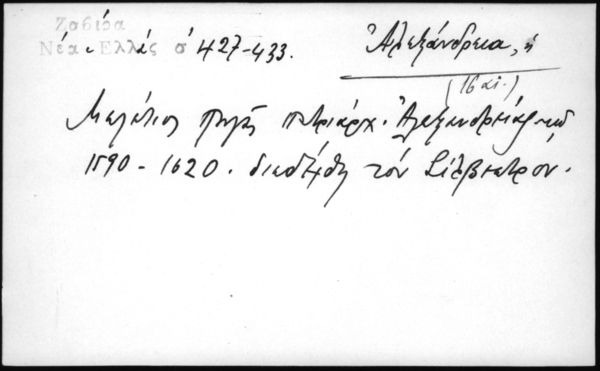 Ζαβίρα
Νέα Ἑλλάς σ 427-433.
Ἀλεξάνδρεια, ἡ
(16 αἰ.)
Μελέτιος Πηγᾶς πατριάρχ. Ἀλεξανδρείας
1590 - 1620. διεδέχθη τόν Σίλβεστρόν.